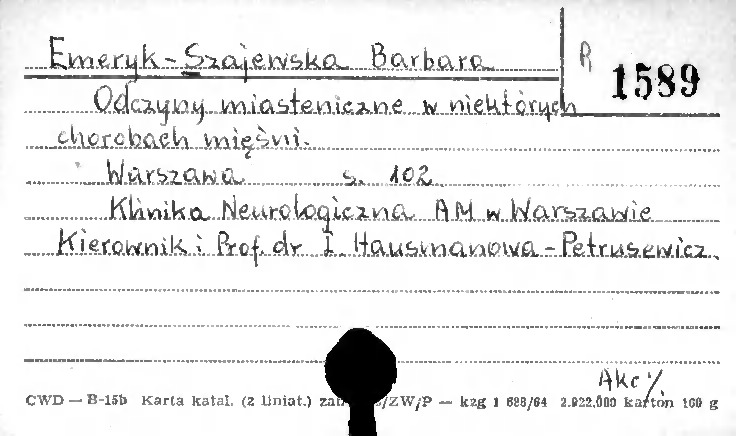 Emeryk-Szajewska Barbara
R 1589
Odczyny miasteniczne w niektórych
chorobach mięśni.
Warszawa s. 102
Klinika Neurologiczna AM w Warszawie
Kierownik: Prof. dr I. Hausmanowa-Petrusewicz.
Akc
CWD — B-15b Karta katal. (z liniat.) /ZW/P — kzg 1 688/64 2.922.000 karton 160 g